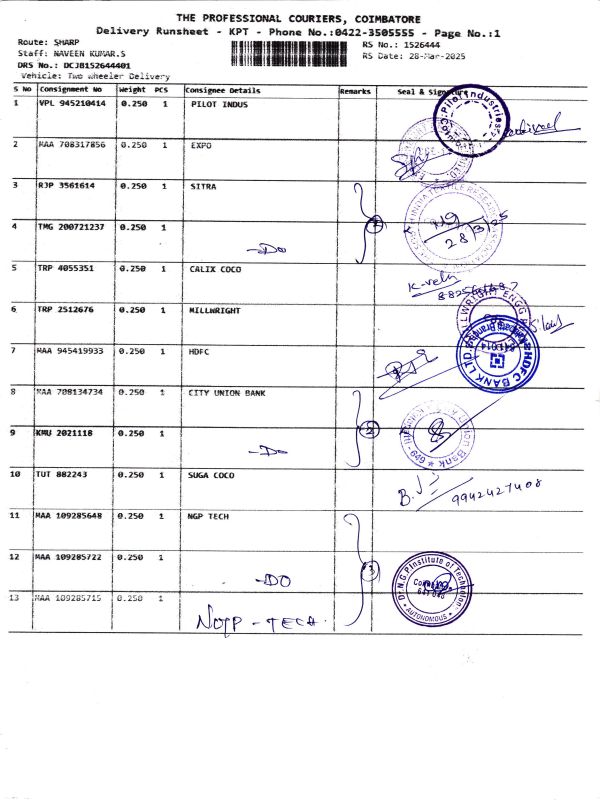 THE PROFESSIONAL COURIERS, COIMBATORE
Delivery Runsheet - KPT - Phone No.:0422-3505555 - Page No.:1
Route: SHARP
RS No.: 1526444
Staff: NAVEEN KUMAR.S
RS Date: 28-Mar-2025
DRS No.: DCJ8152644401
Vehicle: Two Wheeler Delivery
S No Consignment No Weight PCS Consignee Details Remarks Seal & Signature
1 VPL 945210414 0.250 1 PILOT INDUS
Pilot Industries
2 MAA 708317856 0.250 1 EXPO
3 RJP 3561614 0.250 1 SITRA
4 TMG 200721237 0.250 1 -DO 2
28/3/25
5 TRP 4055351 0.250 1 CALIX COCO
K-velu
6 TRP 2512676 0.250 1 MILLWRIGHT
MILLWRIGHT ENGG
7 MAA 945419933 0.250 1 HDFC
HDFC BANK LTD
8 MAA 708134734 0.250 1 CITY UNION BANK
9 KMU 2021118 0.250 1 -DO 2
Union Bank
649
10 TUT 882243 0.250 1 SUGA COCO
B.J
9942427408
11 MAA 109285648 0.250 1 NGP TECH
12 MAA 109285722 0.250 1 -DO 3
Dr.N.G.P.Institute of Technology
AUTONOMOUS
13 MAA 109285715 0.250 1 NGP - TECH.